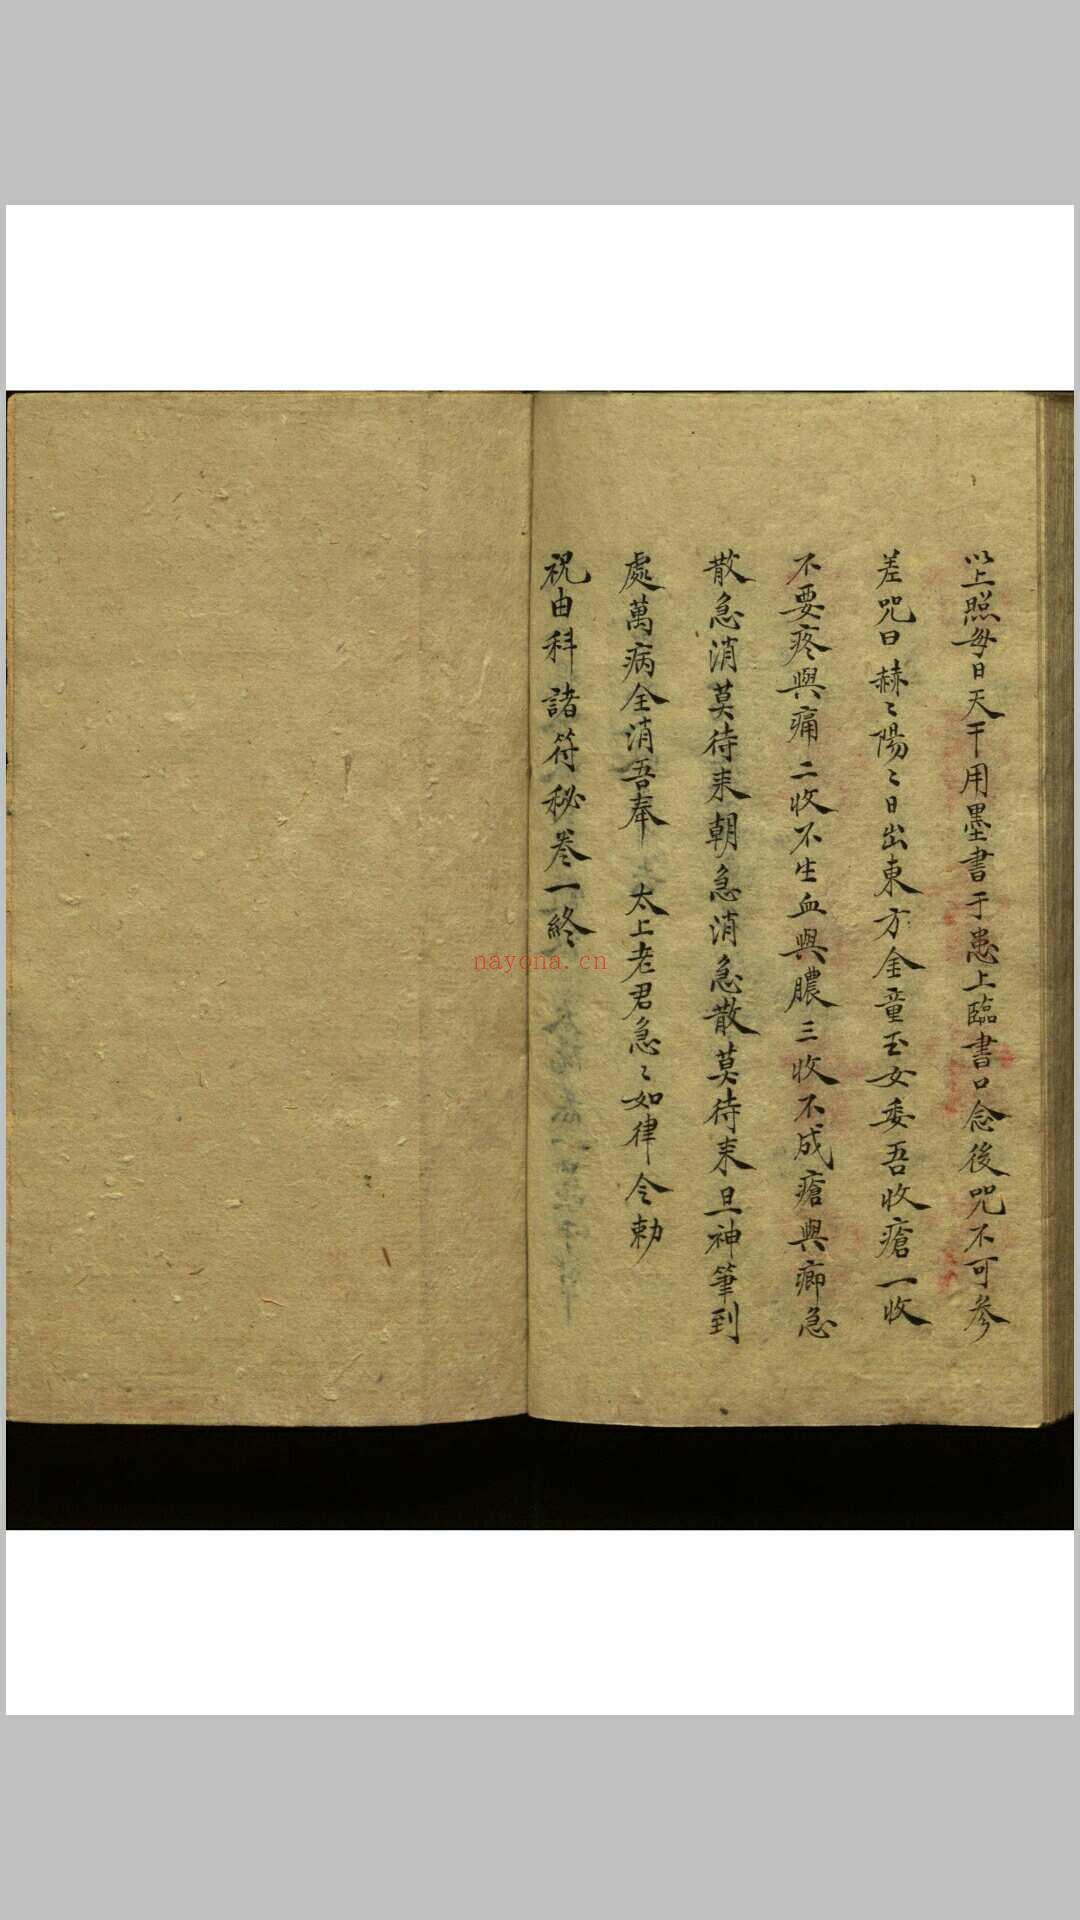 以上照每日天干用墨書于患上臨書口念後咒不可參
差咒曰赫〻陽〻日出東方金童玉女委吾收瘡一收
不要疼與痛二收不生血與膿三收不成瘡與癤急
散急消莫待来朝急消急散莫待来旦神筆到
處萬病全消吾奉 太上老君急〻如律令勅
祝由科諸符秘卷一終
nayona.cn